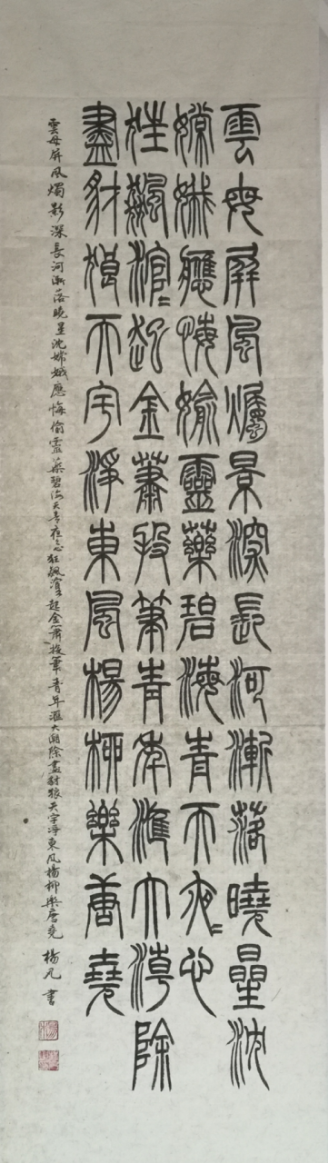 雲母屏風燭景深長河漸落曉星沈
嫦娥應悔媮靈藥碧海青天夜=心
狂飆滾=起金蕭投筆青年滙大潮除
盡豺狼天宇淨東風楊柳樂唐堯
雲母屏風燭影深長河漸落曉星沈嫦娥應悔偷靈藥碧海天青夜=心狂飆滾=起金蕭投筆青年滙大潮除盡豺狼天宇淨東風楊柳樂唐堯 楊凡書